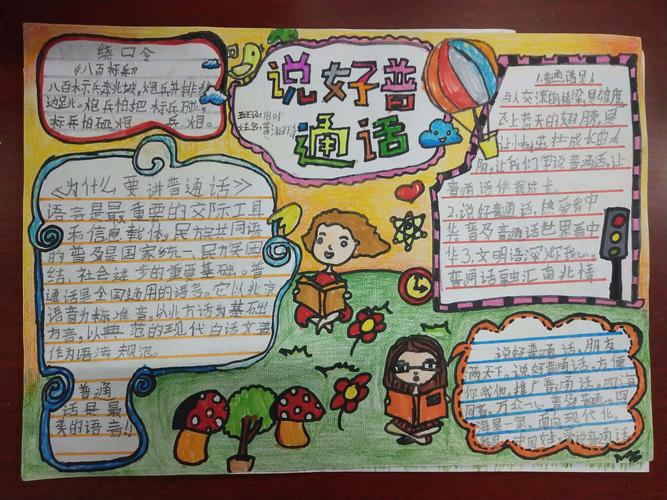 绕口令
《八百标兵》
八百标兵奔北坡,炮兵并排北
边跑。炮兵怕把标兵碰,
标兵怕碰炮兵炮。
说好普
通话
班级:1801
姓名:
《为什么要讲普通话》
语言是最重要的交际工具
和信息载体。民族共同语
的普及是国家统一、民族团
结、社会进步的重要基础。普
通话是全国通用的语言。它以北京
语音为标准音,以北方话为基础
方言,以典范的现代白话文著
作为语法规范。
普通
话是最
美的语言!!
1.普通话是人
与人交流的桥梁,是雄鹰
飞上蓝天的翅膀,是
让小树茁壮成长的水
让我们学说普通话,让
普通话伴我成长。
2.说好普通话,热爱我中
华,普及普通话世界看中
华3.文明语深
普通话融汇南北情
说好普通话,朋友
遍天下。说好普通话,方便
你我他,推广普通话。四海
是一家,面向现代化,
中国娃,爱说普通话